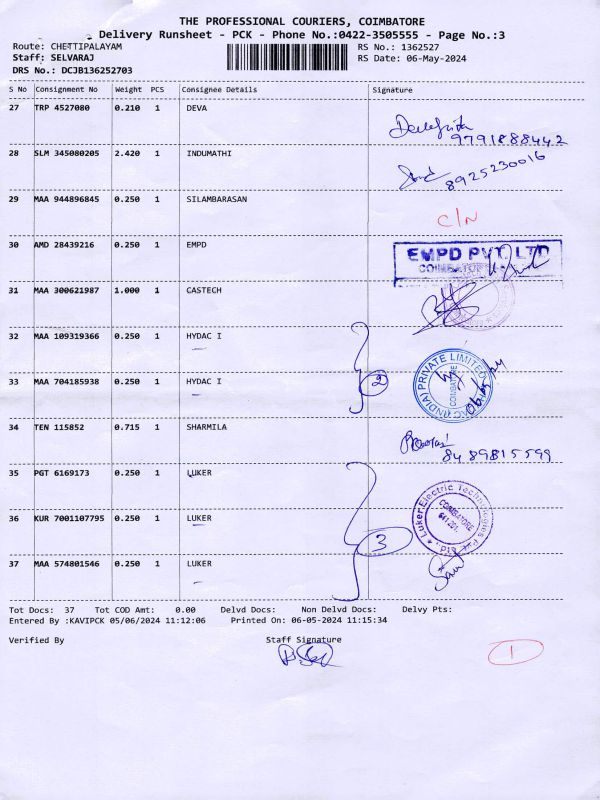 THE PROFESSIONAL COURIERS, COIMBATORE
Delivery Runsheet - PCK - Phone No.:0422-3505555 - Page No.:3
Route: CHETTIPALAYAM RS No.: 1362527
Staff: SELVARAJ RS Date: 06-May-2024
DRS No.: DCJB136252703
S No Consignment No Weight PCS Consignee Details Signature
27 TRP 4527080 0.210 1 DEVA
9791888442
28 SLM 345080205 2.420 1 INDUMATHI
8925230016
29 MAA 944896845 0.250 1 SILAMBARASAN C/N
30 AMD 28439216 0.250 1 EMPD EMPD PVT. LTD
COIMBATORE
31 MAA 300621987 1.000 1 CASTECH
32 MAA 109319366 0.250 1 HYDAC I
33 MAA 704185938 0.250 1 HYDAC I 2
(INDIA) PRIVATE LIMITED HYDAC
COIMBATORE
06/05/24
34 TEN 115852 0.715 1 SHARMILA
8489815599
35 PGT 6169173 0.250 1 LUKER
36 KUR 7001107795 0.250 1 LUKER 3
Luker Electric Technologies Pvt
COIMBATORE
641 201.
37 MAA 574801546 0.250 1 LUKER
Tot Docs: 37 Tot COD Amt: 0.00 Delvd Docs: Non Delvd Docs: Delvy Pts:
Entered By :KAVIPCK 05/06/2024 11:12:06 Printed On: 06-05-2024 11:15:34
Verified By Staff Signature
1